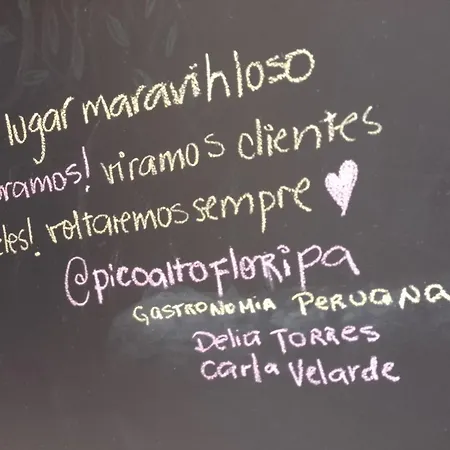 lugar maravihloso
oramos! viramos clientes
eles! voltaremos sempre
@picoaltofloripa
GASTRONOMIA PERUANA
Delia TORRES
Carla Velarde